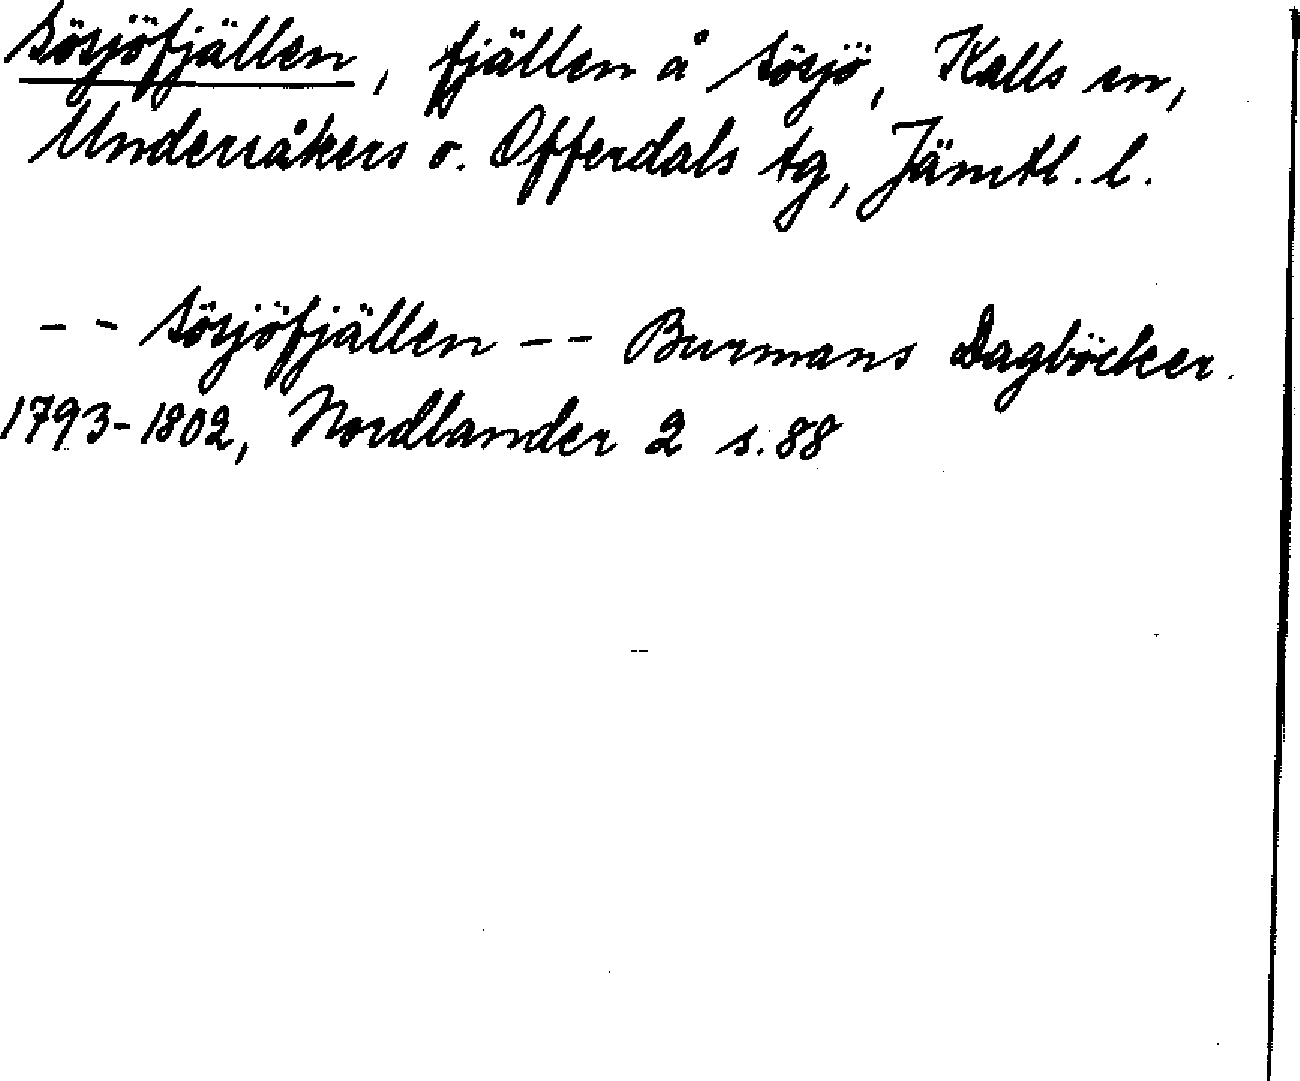 Sösjöfjällen, fjällen å Sösjö, Kalls sn,
Undersåkers o. Offerdals tg, Jämtl. l.
-- Sösjöfjällen -- Burmans Dagböcker.
1793-1802, Nordlander 2 s. 88